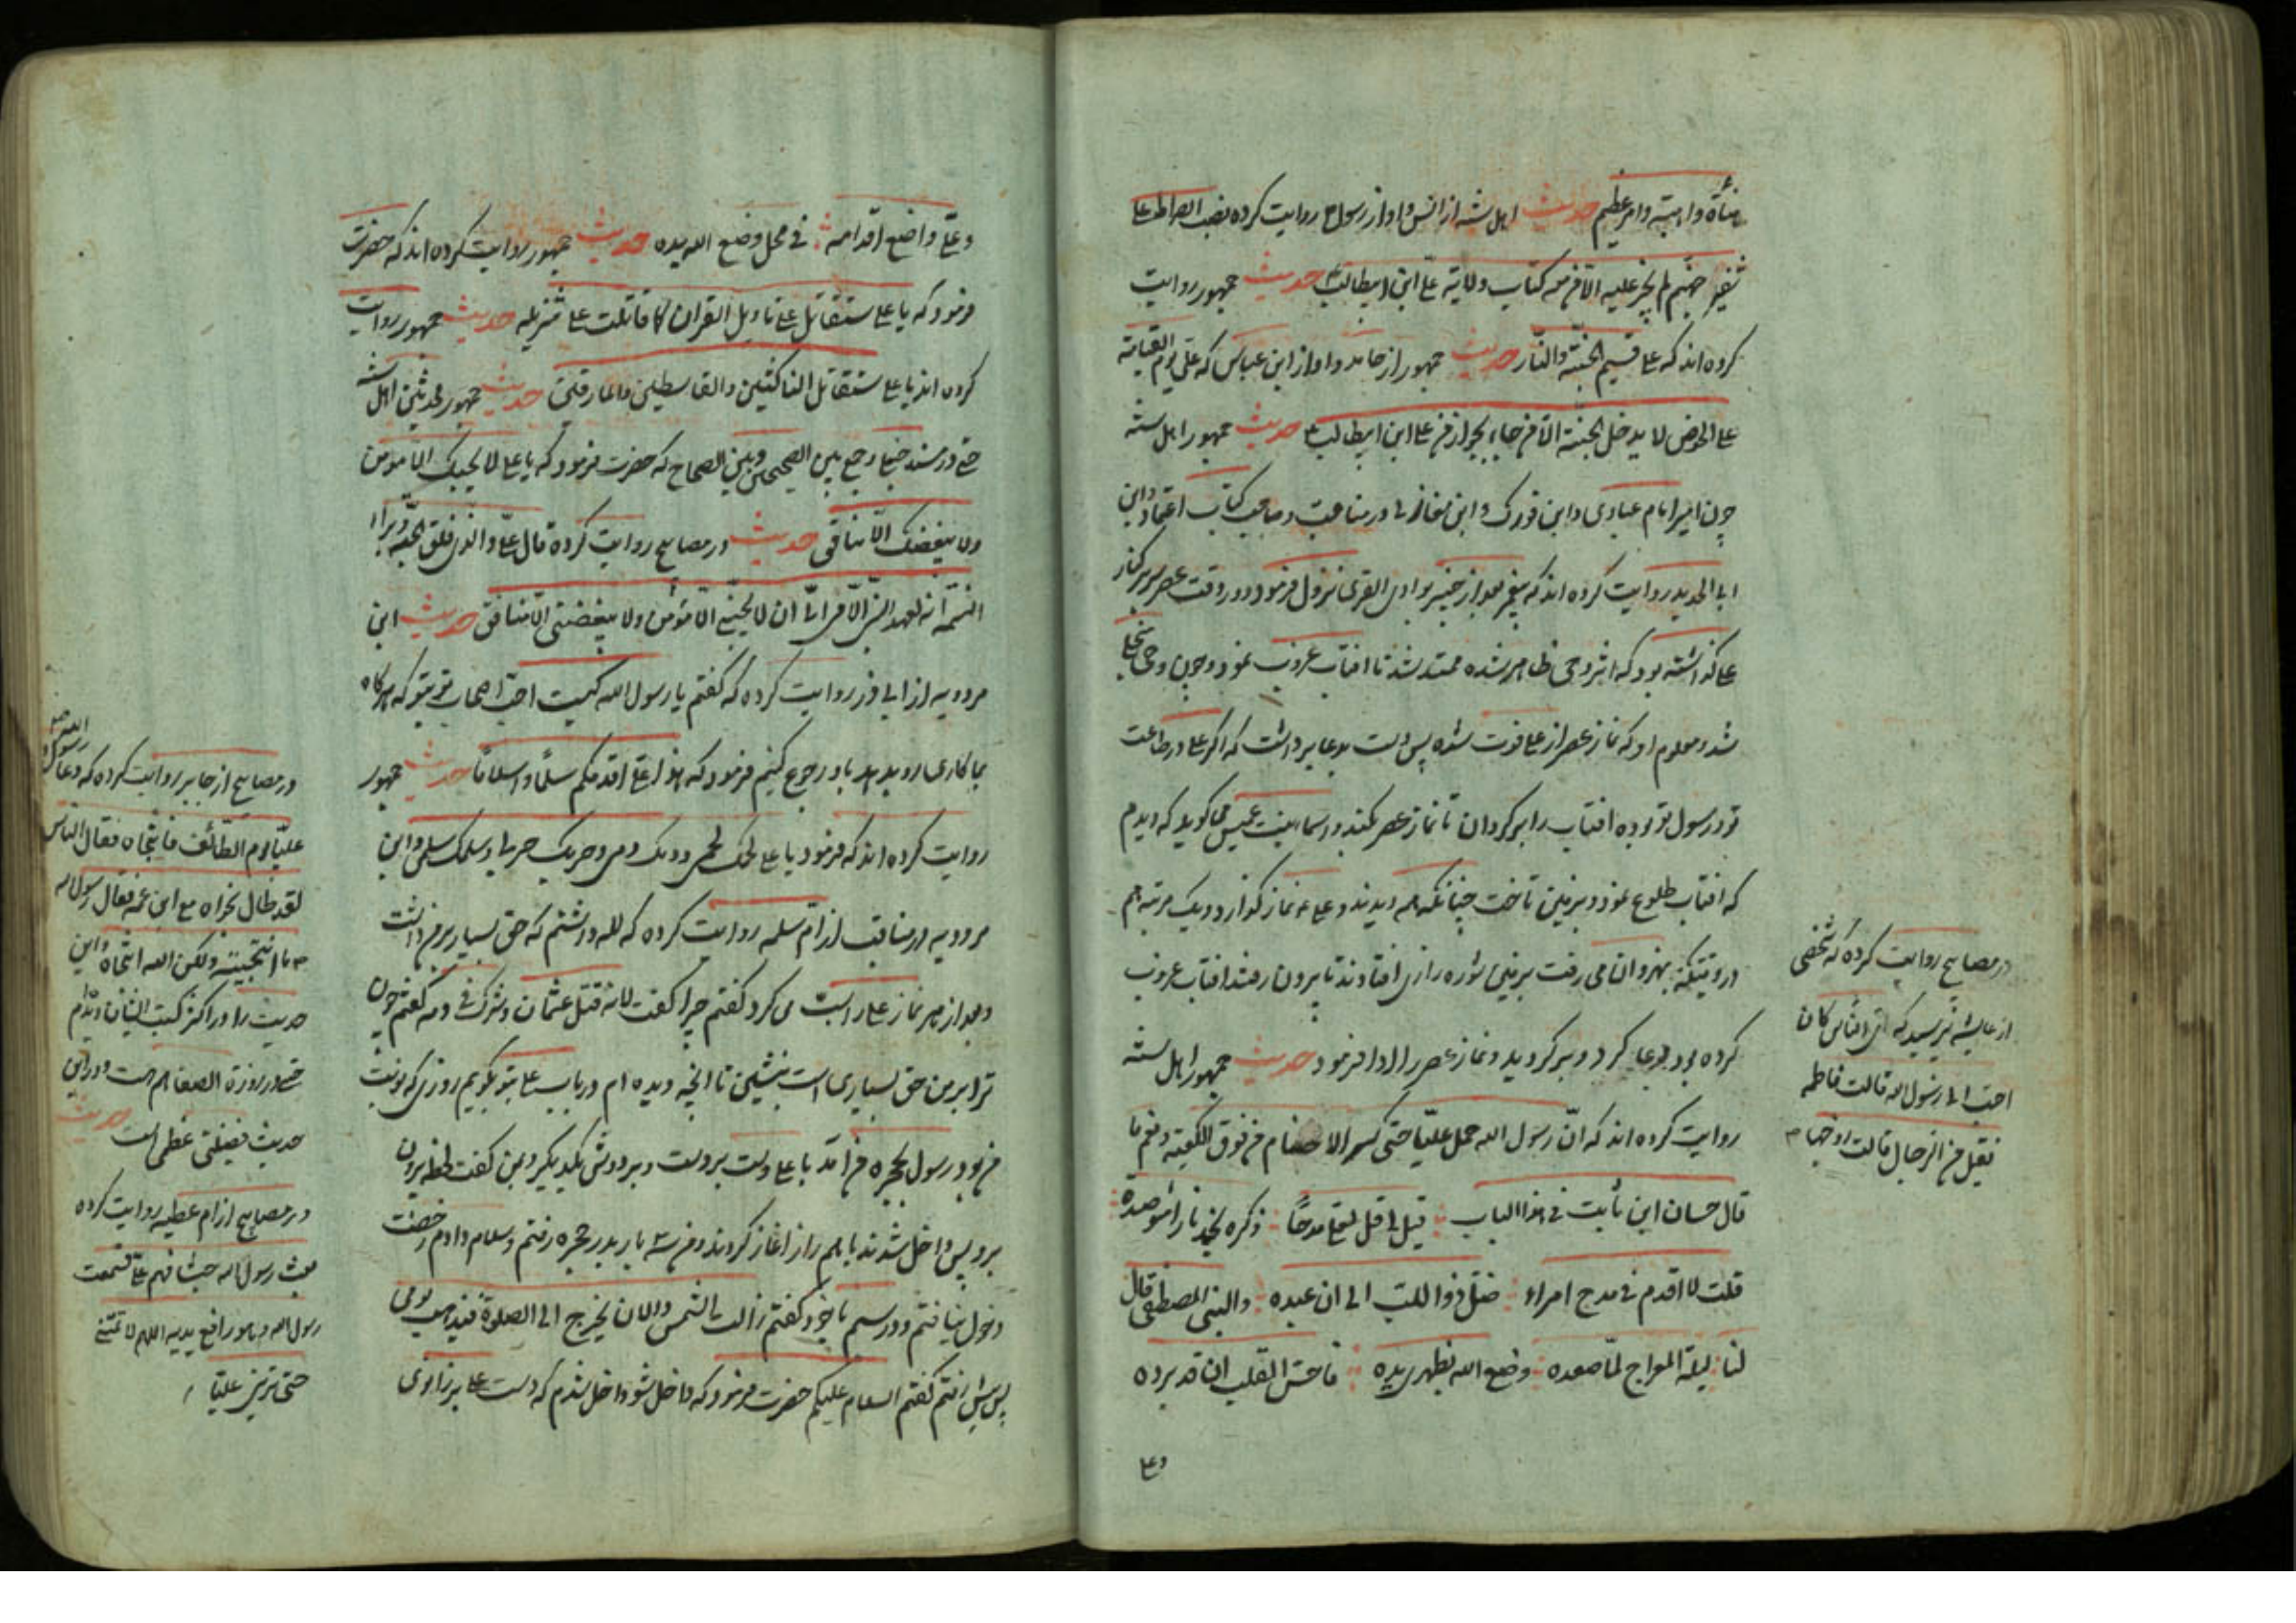 وامر عظیم حدیث اهل سنه از انس و او از رسول روایت کرده نصب الصراط علی
جهنم لم یجز علیه الا من معه کتاب ولایة علی ابن ابیطالب حدیث جمهور روایت
کرده اند که علی قسیم الجنة والنار حدیث جمهور از حامد و او از ابن عباس که علی یوم القیامة
علی الحوض لا یدخل الجنة الا من جاء بجواز من علی ابن ابیطالب حدیث جمهور اهل سنه
چون امیر امام عبادی و ابن فورک و ابن مغازلی در مناقب و صاحب کتاب اعتقاد و ابن
ابی الحدید روایت کرده اند که پیغمبر بعد از خیبر بوادی القری نزول فرمود و در وقت عصر سر بر کنار
علی گذاشته بود که اثر وحی ظاهر شده ممتد شد تا افتاب غروب نمود و چون وحی منجلی
شد و معلوم او که نماز عصر از علی فوت شده پس دست بدعا برداشت که اگر علی در طاعت
تو و رسول تو بوده افتاب را بر کردان تا نماز عصر بکند و اسما بنت عمیس میکوید که دیدم
که افتاب طلوع نمود و بر زمین تافت چنانکه همه دیدند و علی نماز گذارد و یک مرتبه هم
در وقتیکه بنهروان می رفت بزمین شوره زاری افتادند تا بیرون رفتند افتاب غروب
کرده بود دعا کرد و بر گردید و نماز عصر را ادا فرمود حدیث جمهور اهل سنه
روایت کرده اند که ان رسول الله حمل علیا حتی کسر الاصنام من فوق الکعبة و نعم ما
قال حسان ابن ثابت فی هذا الباب قیل لی قل لعلی مدحا ذکره یخمد نارا موصده
قلت لا اقدم فی مدح امرء ضل ذو اللب الی ان عبده والنبی المصطفی قال
لنا لیلة المعراج لما صعده وضع الله بظهری یده فاحس القلب ان قد برده
وعلی
در مصابیح روایت کرده که شخصی
از عایشه پرسید که ای الناس کان
احب الی رسول الله قالت فاطمه
فقیل من الرجال قالت زوجها
وعلی واضع اقدامه فی محل وضع الله یده حدیث جمهور روایت کرده اند که حضرت
فرمود که یا علی ستقاتل علی تاویل القران کما قاتلت علی تنزیله حدیث جمهور روایت
کرده اند یا علی ستقاتل الناکثین والقاسطین والمارقین حدیث جمهور محدثین اهل سنه
حتی در مسند حنبل و جمع بین الصحیحین و بین الصحاح که حضرت فرمود که یا علی لا یحبک الا مومن
ولا یبغضک الا منافق حدیث در مصابیح روایت کرده قال علی والذی فلق الحبة و برا
النسمة انه لعهد النبی الامی الی ان لا یحبنی الا مؤمن ولا یبغضنی الا منافق حدیث ابن
مردویه از ابی ذر روایت کرده که گفتم یا رسول الله کیست احب اصحاب تو بتو که هر گاه
ما کاری رو بدهد باو رجوع کنیم فرمود که هذا علی اقدمکم سلما و اسلاما حدیث جمهور
روایت کرده اند که فرمود یا علی لحمک لحمی و دمک دمی و حربک حربی و سلمک سلمی و ابن
مردویه در مناقب از ام سلمه روایت کرده که لله داشتم که حق بسیار بر من داشت
و بعد از هر نماز علی را سب می کرد گفتم چرا گفت لانه قتل عثمان و شرک فی دمه گفتم چون
ترا بر من حق بسیاری است بنشین تا انچه دیده ام در باب علی بتو بگویم روزی که نوبت
من بود رسول بحجره من آمد با علی دست بر دست و بر دوش یکدیگر و بمن گفت لحظه بیرون
برو پس داخل شدند با هم راز اغاز کردند و من سه بار بدر حجره رفتم و سلام دادم رخصت
دخول نیافتم و در سیم با خود گفتم زالت الشمس والان یخرج الی الصلوة فیذهب یومی
پس پیش رفتم گفتم السلام علیکم حضرت فرمود که داخل شو داخل شدم که دست علی بر زانوی
در مصابیح از جابر روایت کرده که دعا رسول الله
علیا یوم الطائف فانتجاه فقال الناس
لقد طال نجواه مع ابن عمه فقال رسول الله
ما انتجیته ولکن الله انتجاه و این
حدیث را در اکثر کتب ایشان دیدم
حتی در روزة الصفا هم هست و در این
حدیث فضیلتی عظمی است حدیث
در مصابیح از ام عطیه روایت کرده
بعث رسول الله جیشا فیهم علی فسمعت
رسول الله و هو رافع یدیه اللهم لا تمتنی
حتی ترینی علیا